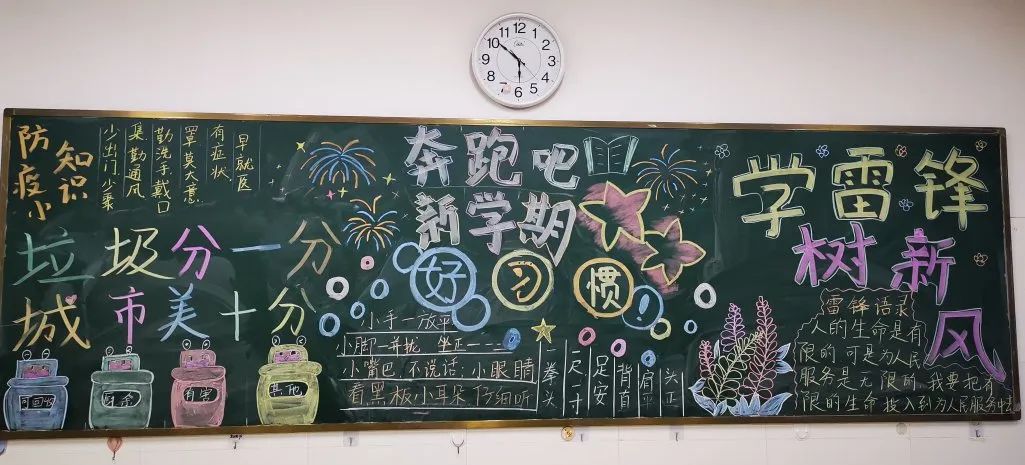 防疫小
知识
少出门 少聚
集 勤通风
勤洗手戴口
罩 莫大意
有症状
早就医
垃圾分一分
城市美十分
可回收
厨余
有害
其他
12
1
2
3
4
5
6
7
8
9
10
11
奔跑吧
新学期
好习惯!
小手一放平
小脚一并拢 坐正一一一
小嘴巴,不说话;小眼睛
看黑板小耳朵仔细听
一拳头
一尺一寸
足安
背直
肩平
头正
学雷锋
树新风
雷锋语录
人的生命是有
限的,可是为人民
服务是无限的,我要把有
限的生命投入到为人民服务中去